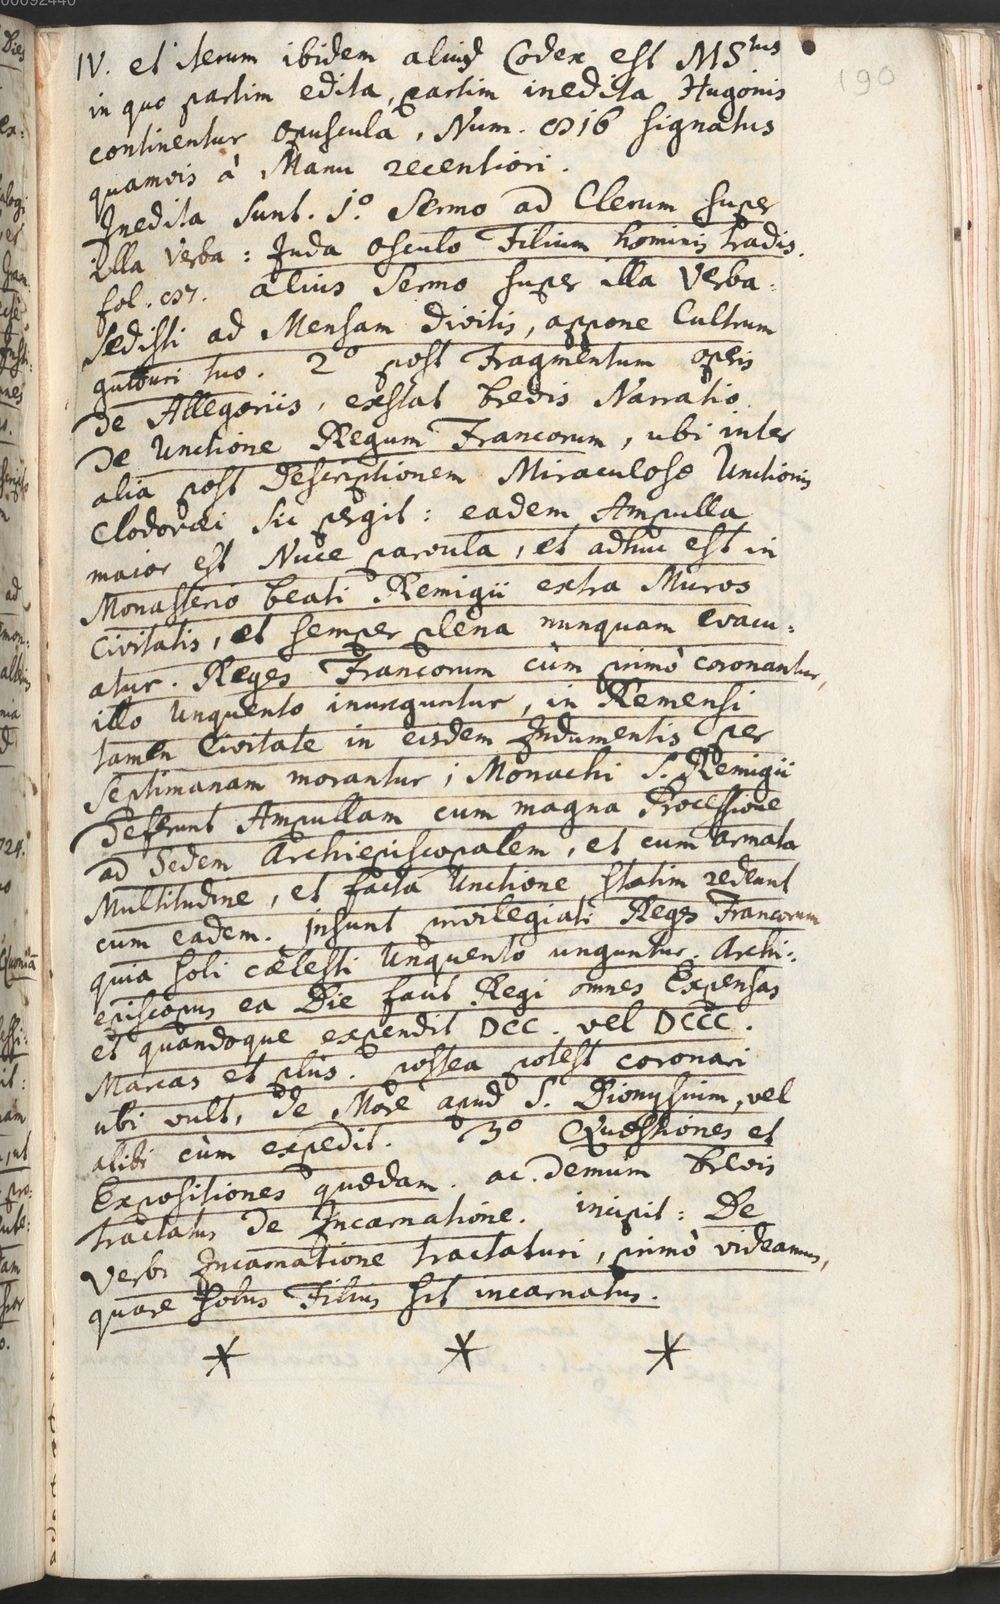 190
IV. et iterum ibidem aliud Codex est MStus
in quo partim edita, partim inedita Hugonis
continentur opuscula, Num. 816 signatus
quamvis à Manu recentiori.
Inedita sunt. 1.o Sermo ad Clerum super
illa verba: Juda osculo Filium hominis tradis.
fol. 87. alius Sermo super illa Verba:
Sedisti ad Mensam divitis, appone Cultrum
gutturi tuo. 2o post Fragmentum operis
de Allegoriis, exstat brevis Narratio
de Unctione Regum Francorum, ubi inter
alia post Descriptionem Miraculosæ Unctionis
Clodovæi sic pergit: eadem Ampulla
maior est Nuce parvula, et adhuc est in
Monasterio beati Remigii extra Muros
Civitatis, et semper plena nunquam evacu=
atur. Reges Francorum cùm primò coronantur,
illo Unguento inunguntur, in Remensi
tamen Civitate in eisdem Indumentis per
Septimanam morantur; Monachi S. Remigii
deferunt Ampullam cum magna Processione
ad Sedem Archiepiscopalem, et cum armata
Multitudine, et facta Unctione statim redeunt
cum eadem. insunt privilegiati Reges Francorum
quia soli cælesti Unguento unguntur. Archi=
episcopus ea Die facit Regi omnes Expensas
et quandoque expendit DCC. vel DCCC.
Marcas et plus. postea potest coronari
ubi vult, de More apud S. Dionysium, vel
alibi cùm expedit. 3o Quæstiones et
Expositiones quædam. ac demùm brevis
tractatus de Incarnatione. incipit: De
Verbi Incarnatione tractaturi, primò videamus,
quare solus Filius sit incarnatus.
* * *